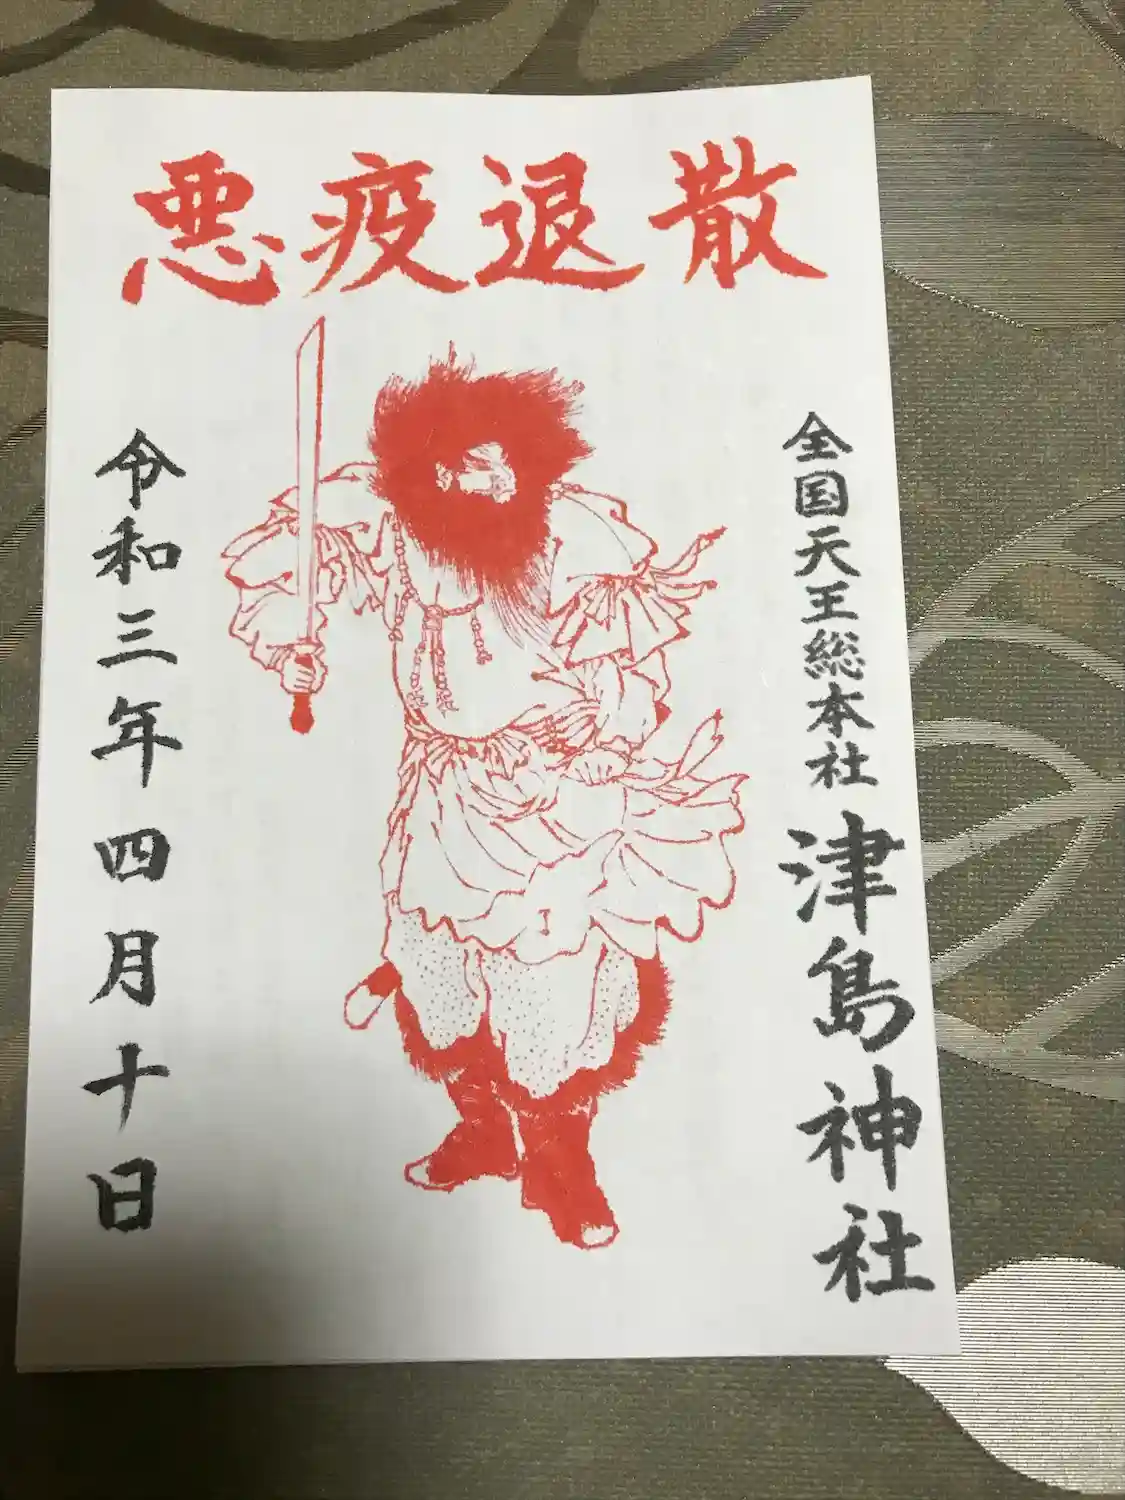 悪疫退散
全国天王総本社 津島神社
令和三年四月十日